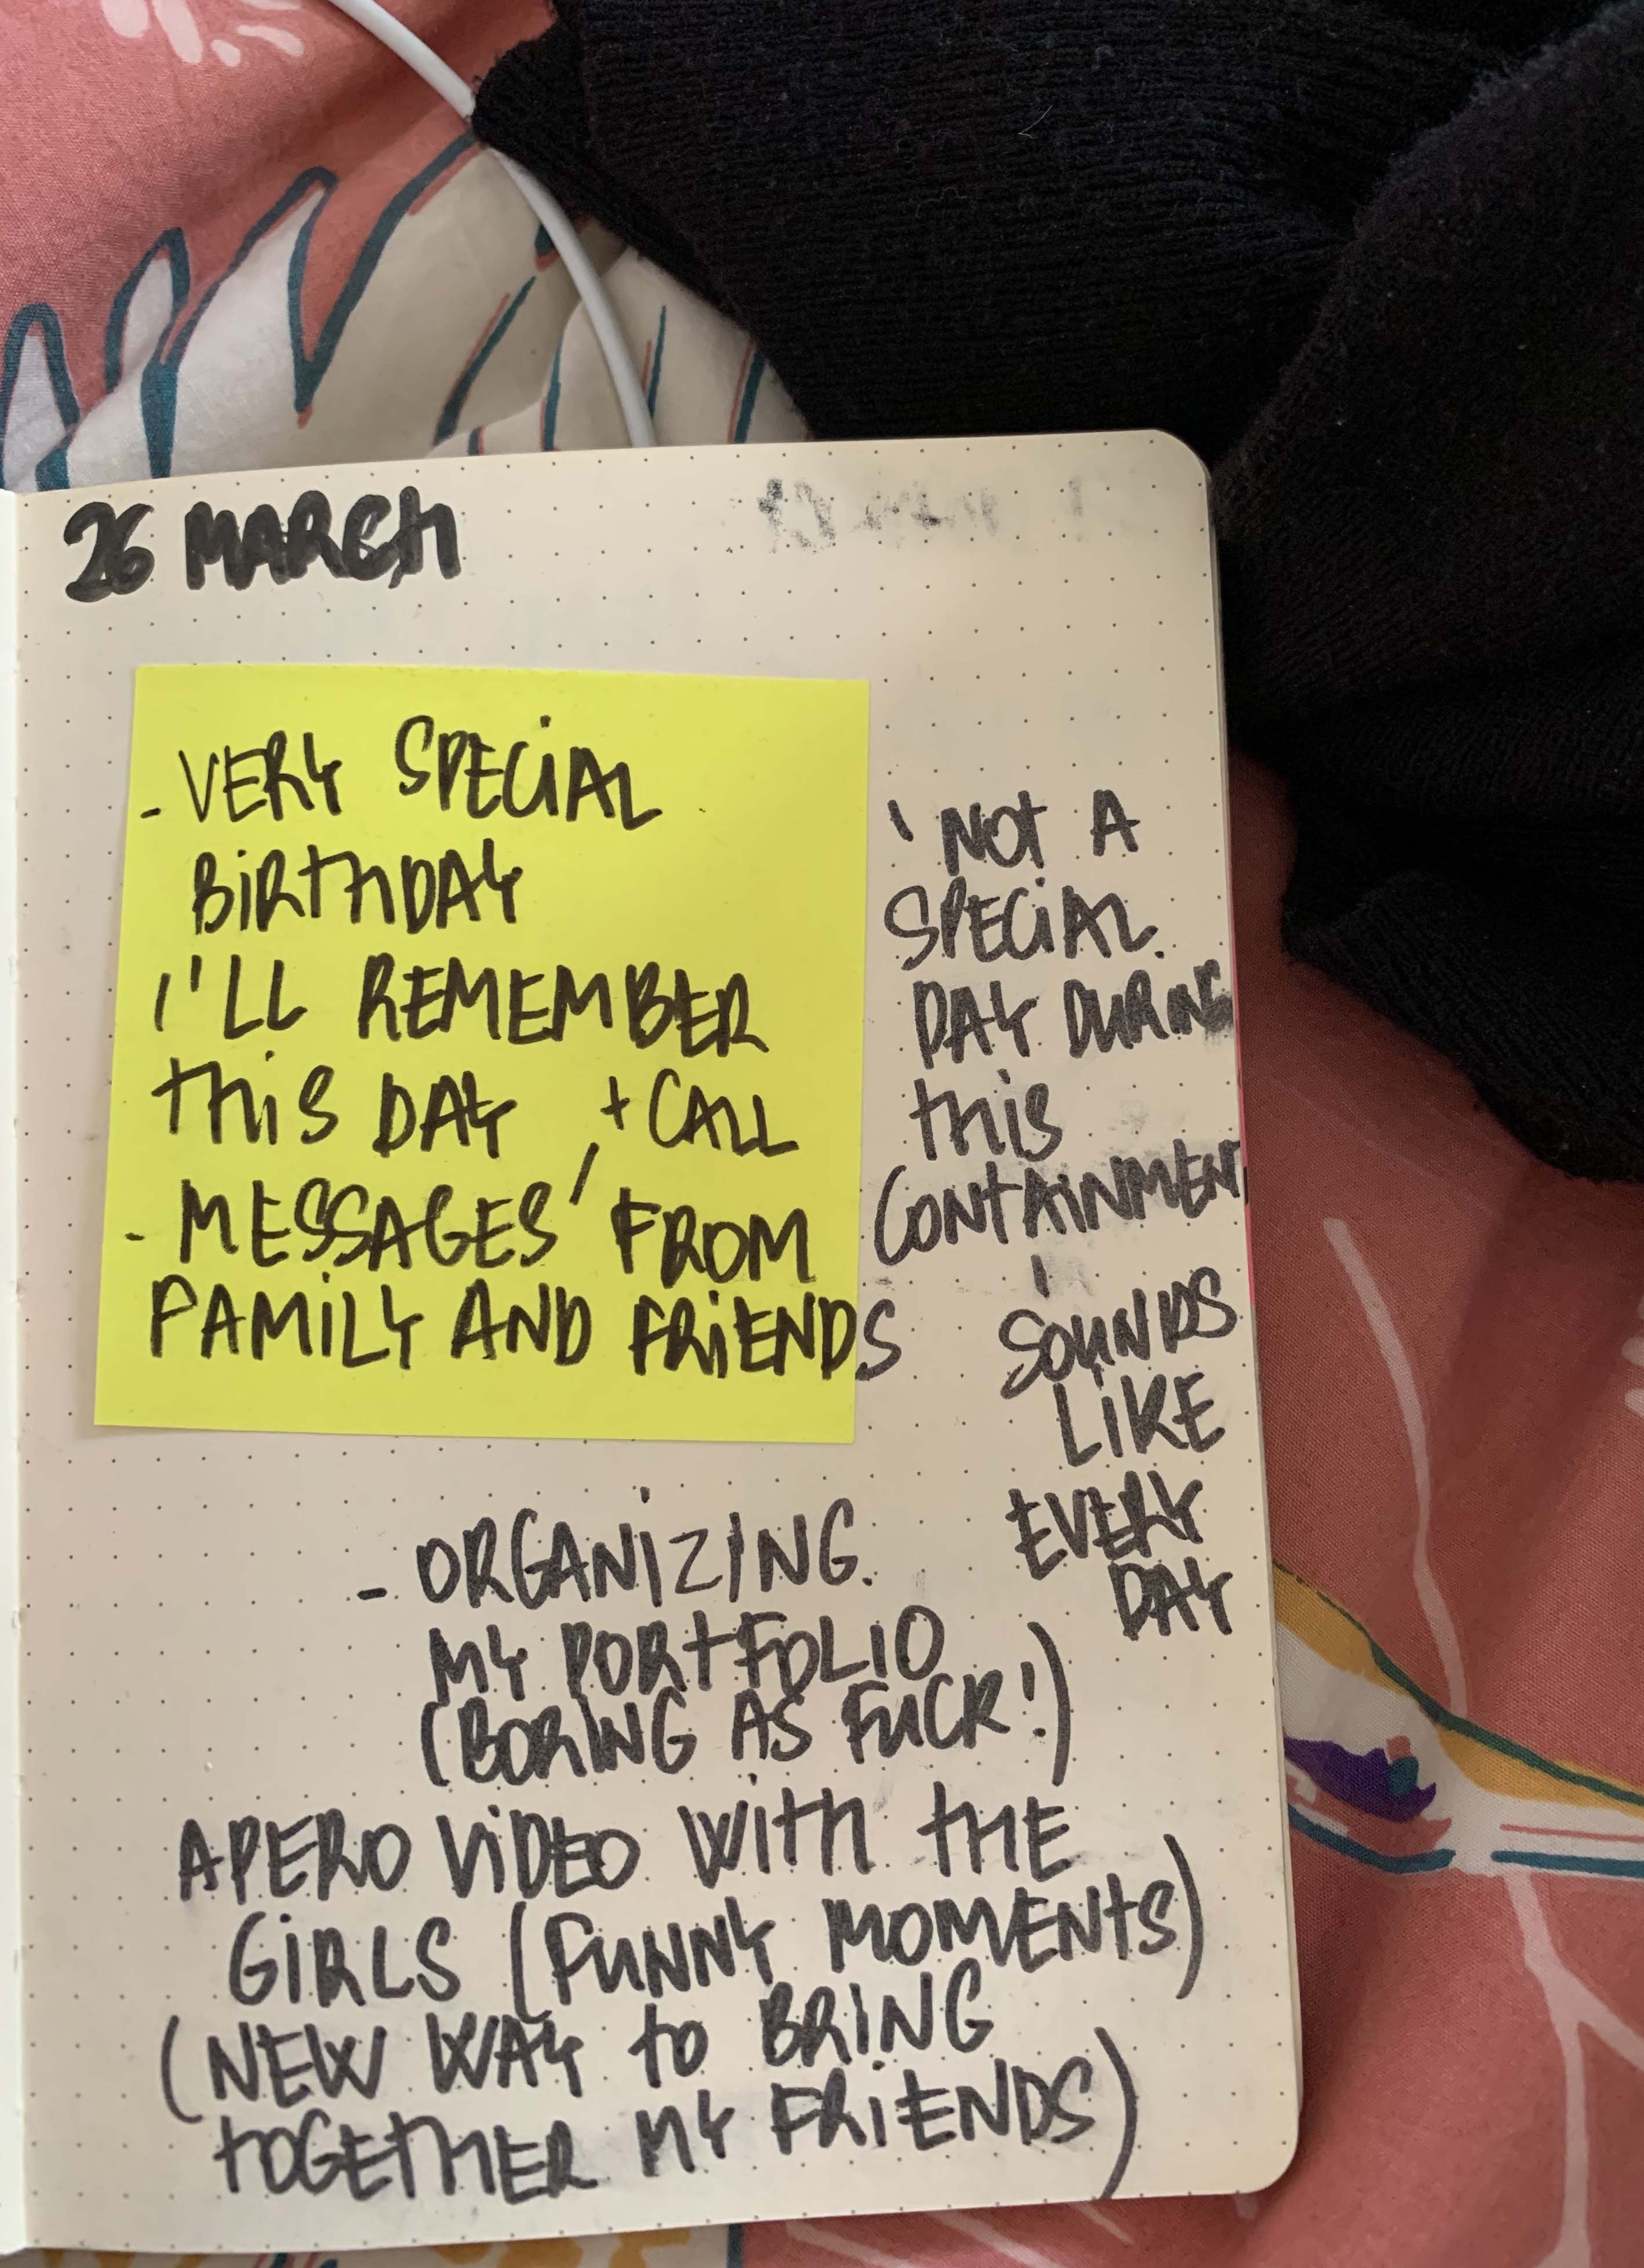 26 MARCH
- VERY SPECIAL
BIRTHDAY
I'LL REMEMBER
THIS DAY + CALL
- MESSAGES / FROM
FAMILY AND FRIENDS
' NOT A
SPECIAL
DAY DURING
THIS
CONTAINMEN
'
SOUNDS
LIKE
EVERY
DAY
- ORGANIZING
MY PORTFOLIO
(BORING AS FUCK!)
APERO VIDEO WITH THE
GIRLS (FUNNY MOMENTS)
(NEW WAY TO BRING
TOGETHER MY FRIENDS)